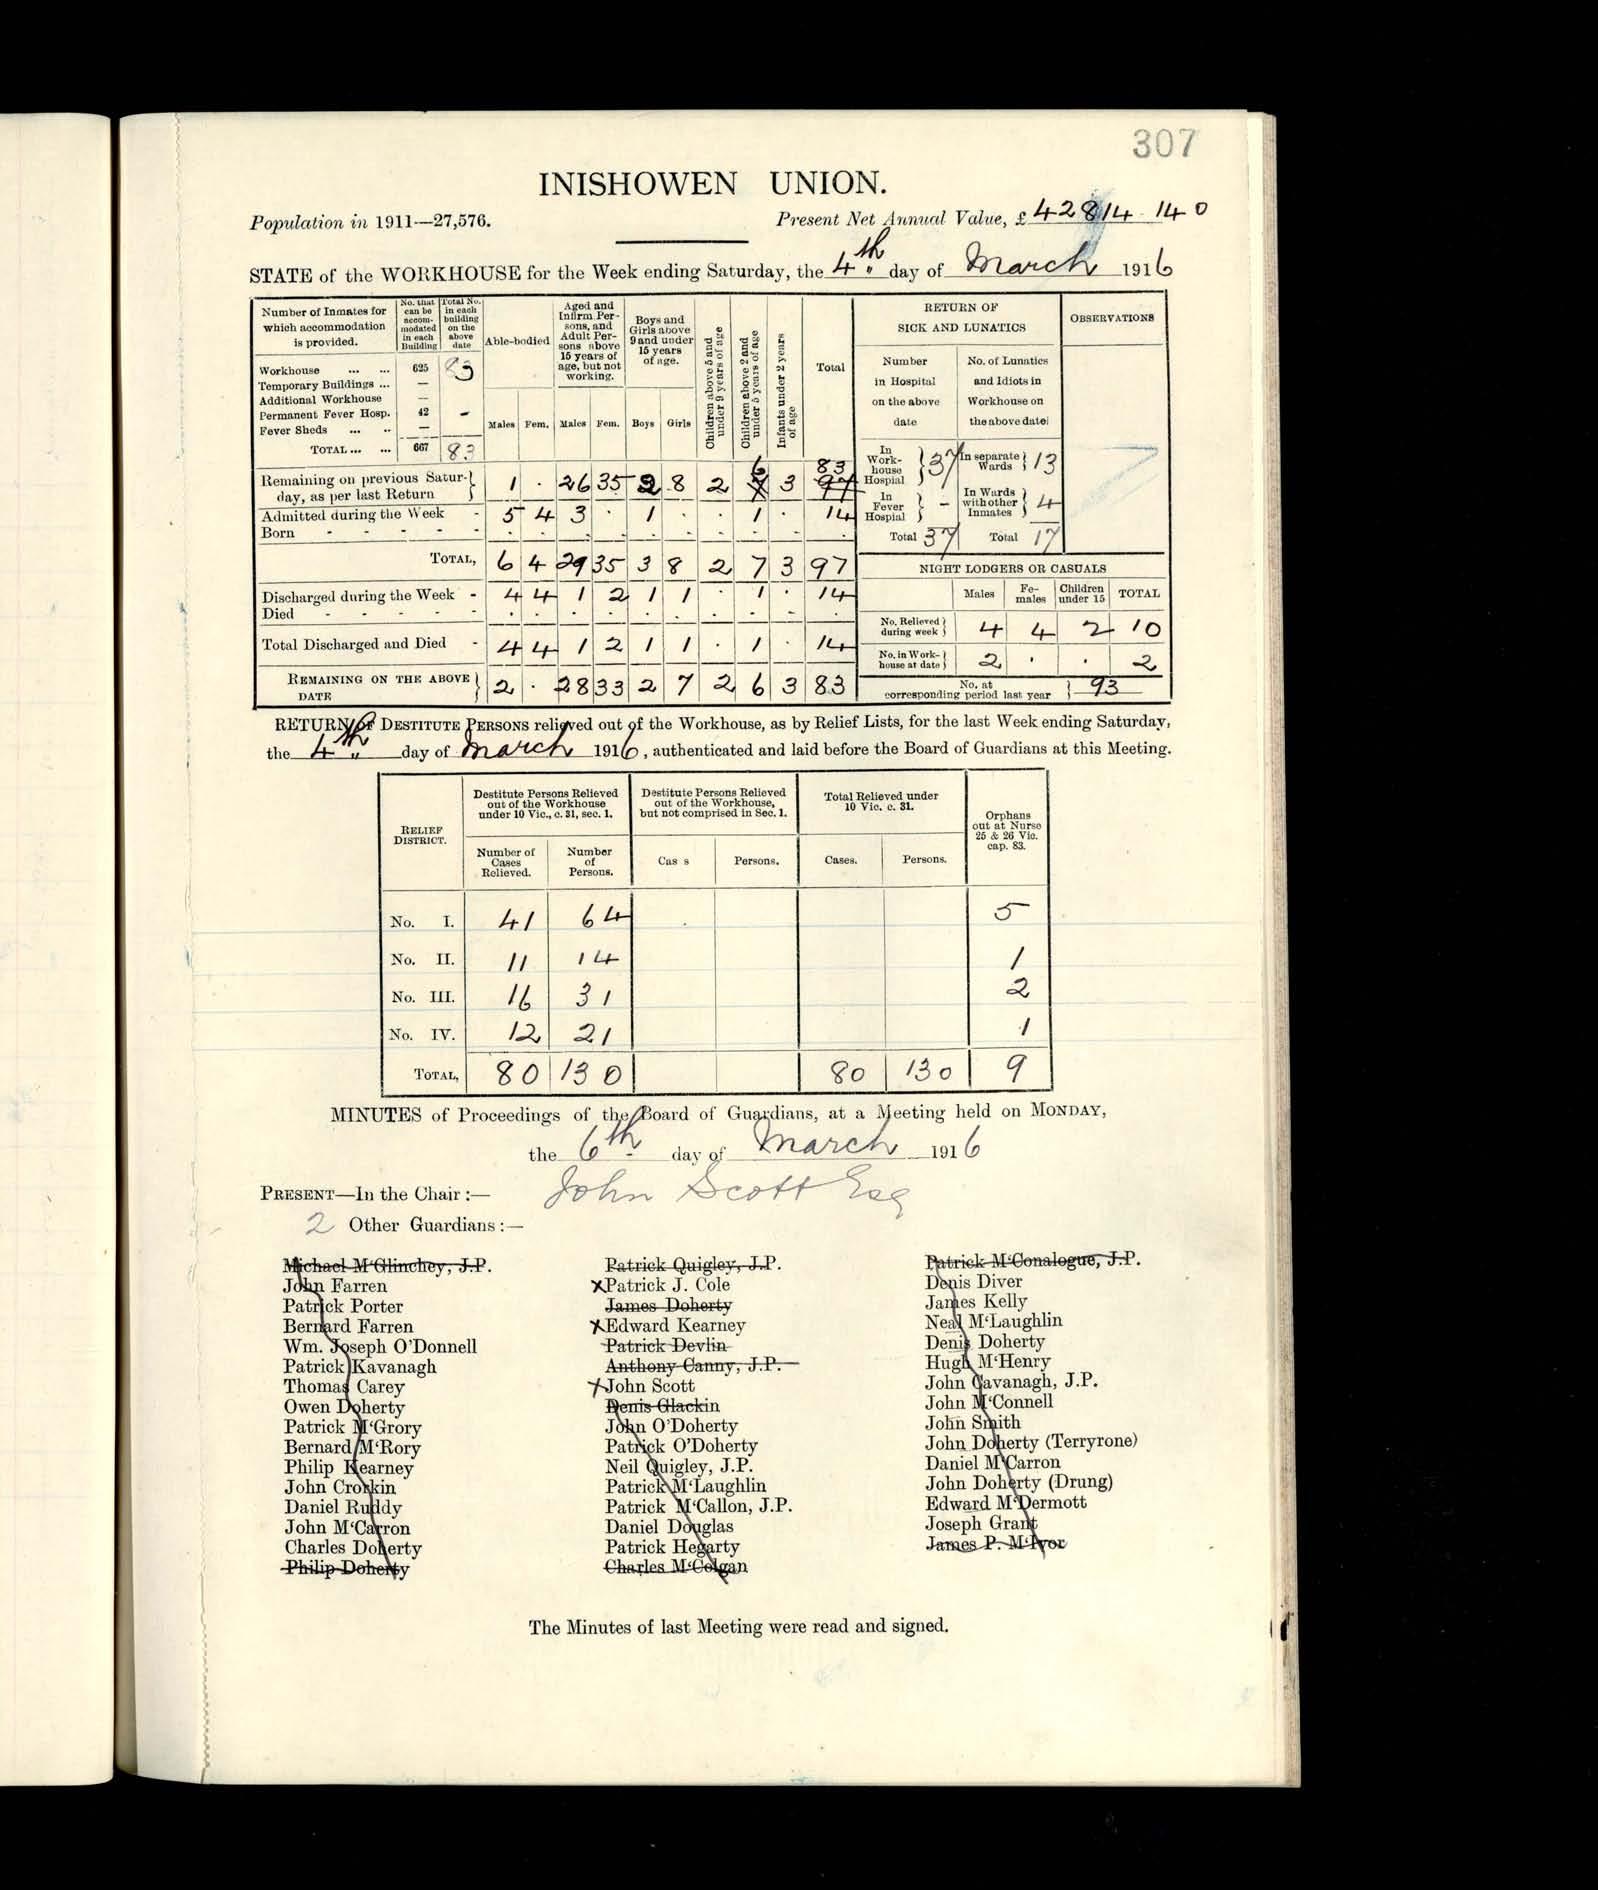 307
INISHOWEN UNION.
Population in 1911—27,576. Present Net Annual Value, £ 42814 14 0
STATE of the WORKHOUSE for the Week ending Saturday, the 4th day of March 1916
Number of Inmates for which accommodation is provided. No. that can be accommodated in each Building Total No. in each building on the above date
Workhouse ... ... 625 83
Temporary Buildings ... —
Additional Workhouse —
Permanent Fever Hosp. 42 -
Fever Sheds ... .. —
TOTAL ... ... 667 83
Able-bodied Aged and Infirm Persons, and Adult Persons above 15 years of age, but not working. Boys and Girls above 9 and under 15 years of age. Children above 5 and under 9 years of age Children above 2 and under 5 years of age Infants under 2 years of age Total
Males Fem. Males Fem. Boys Girls
Remaining on previous Saturday, as per last Return } 1 . 26 35 2 8 2 7 6 3 97 83
Admitted during the Week - 5 4 3 . 1 . . 1 . 14
Born - - - - - . . . . . . - - - .
TOTAL, 6 4 29 35 3 8 2 7 3 97
Discharged during the Week - 4 4 1 2 1 1 . 1 . 14
Died - - - - - . . . . . . . . - .
Total Discharged and Died - 4 4 1 2 1 1 . 1 . 14
REMAINING ON THE ABOVE DATE } 2 . 28 33 2 7 2 6 3 83
RETURN OF SICK AND LUNATICS
OBSERVATIONS
Number in Hospital on the above date
No. of Lunatics and Idiots in Workhouse on the above date
In Workhouse Hospial } 37 In separate Wards } 13
In Fever Hospial } - In Wards with other Inmates } 4
Total 37 Total 17
NIGHT LODGERS OR CASUALS
Males Females Children under 15 TOTAL
No. Relieved during week } 4 4 2 10
No. in Workhouse at date } 2 . . 2
No. at corresponding period last year } 93
RETURN OF DESTITUTE PERSONS relieved out of the Workhouse, as by Relief Lists, for the last Week ending Saturday,
the 4th day of March 1916, authenticated and laid before the Board of Guardians at this Meeting.
RELIEF DISTRICT.
Destitute Persons Relieved out of the Workhouse under 10 Vic., c. 31, sec. 1.
Destitute Persons Relieved out of the Workhouse, but not comprised in Sec. 1.
Total Relieved under 10 Vic. c. 31.
Orphans out at Nurse 25 & 26 Vic. cap. 83.
Number of Cases Relieved. Number of Persons. Cas s Persons. Cases. Persons.
No. I. 41 64 5
No. II. 11 14 1
No. III. 16 31 2
No. IV. 12 21 1
TOTAL, 80 130 80 130 9
MINUTES of Proceedings of the Board of Guardians, at a Meeting held on MONDAY,
the 6th day of March 1916
PRESENT—In the Chair :— John Scott Esq
2 Other Guardians :—
Michael M'Glinchey, J.P.
John Farren
Patrick Porter
Bernard Farren
Wm. Joseph O'Donnell
Patrick Kavanagh
Thomas Carey
Owen Doherty
Patrick M'Grory
Bernard M'Rory
Philip Kearney
John Crorkin
Daniel Ruddy
John M'Carron
Charles Doherty
Philip Doherty
Patrick Quigley, J.P.
x Patrick J. Cole
James Doherty
x Edward Kearney
Patrick Devlin
Anthony Canny, J.P.
x John Scott
Denis Glackin
John O'Doherty
Patrick O'Doherty
Neil Quigley, J.P.
Patrick M'Laughlin
Patrick M'Callon, J.P.
Daniel Douglas
Patrick Hegarty
Charles M'Colgan
Patrick M'Conalogue, J.P.
Denis Diver
James Kelly
Neal M'Laughlin
Denis Doherty
Hugh M'Henry
John Cavanagh, J.P.
John M'Connell
John Smith
John Doherty (Terryrone)
Daniel M'Carron
John Doherty (Drung)
Edward M'Dermott
Joseph Grant
James P. M'Ivor
The Minutes of last Meeting were read and signed.